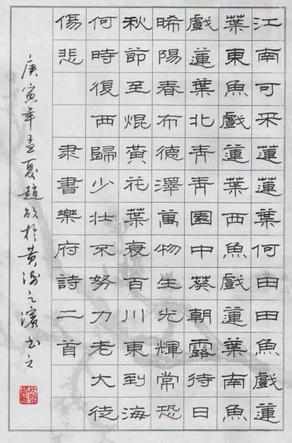 江南可采蓮蓮葉何田田魚戲蓮
葉東魚戲蓮葉西魚戲蓮葉南魚
戲蓮葉北青青園中葵朝露待日
晞陽春布德澤萬物生光輝常恐
秋節至焜黃花葉衰百川東到海
何時復西歸少壯不努力老大徒
傷悲 隸書樂府詩二首
庚寅年孟夏趙於黃海之濱書之